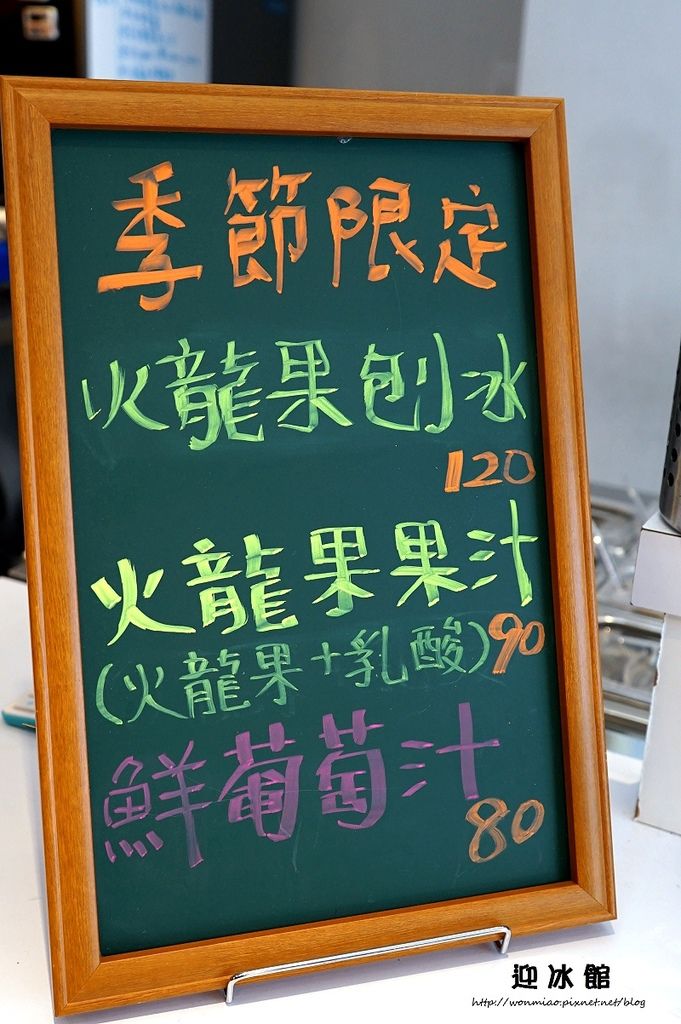 季節限定
火龍果刨冰
120
火龍果果汁
(火龍果+乳酸)90
鮮葡萄汁
80
迎冰館
http://wonmiao.pixnet.net/blog